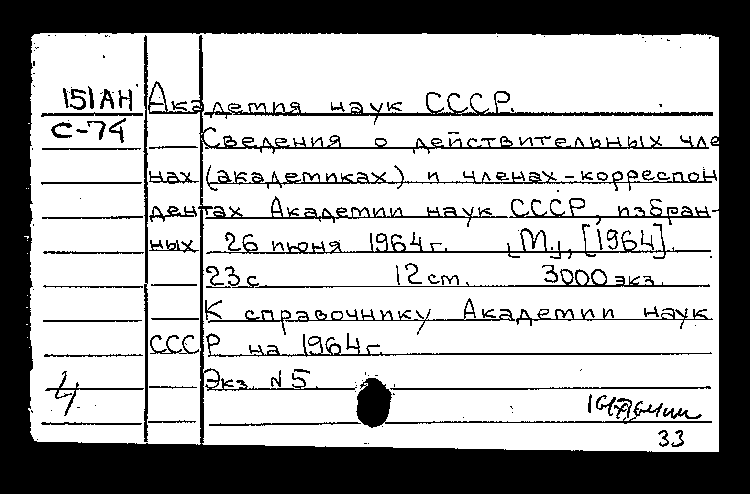 151АН Академия наук СССР.
С-74 Сведения о действительных чле
нах (академиках) и членах-корреспон
дентах Академии наук СССР, избран-
ных 26 июня 1964 г. [М.], [1964].
23 с. 12 ст. 3000 экз.
К справочнику Академии наук
СССР на 1964 г.
Экз N 5.
33